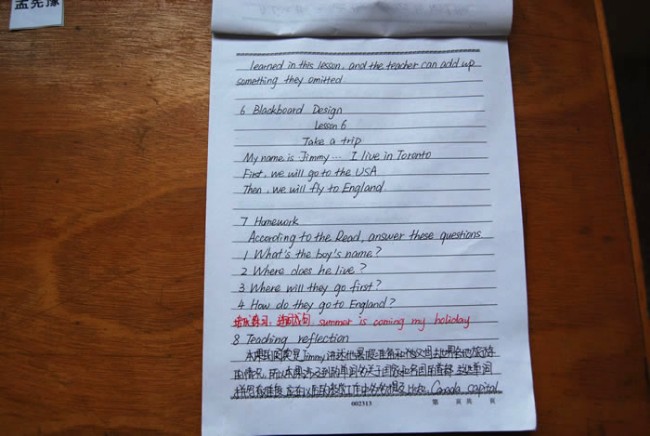 孟宪豫
learned in this lesson, and the teacher can add up
something they omitted
6 Blackboard Design
Lesson 6
Take a trip
My name is Jimmy... I live in Toronto
First, we will go to the USA
Then, we will fly to England
7 Homework
According to the Read, answer these questions
1 What's the boy's name?
2 Where does he live?
3 Where will they go first?
4 How do they go to England?
summer is coming my holiday
8 Teaching reflection
本课阅读是Jimmy讲述他暑假准备和他父母去世界各地旅游
的情况, 所以本课涉及到的单词
Canada, capital
002313
第 页 共 页